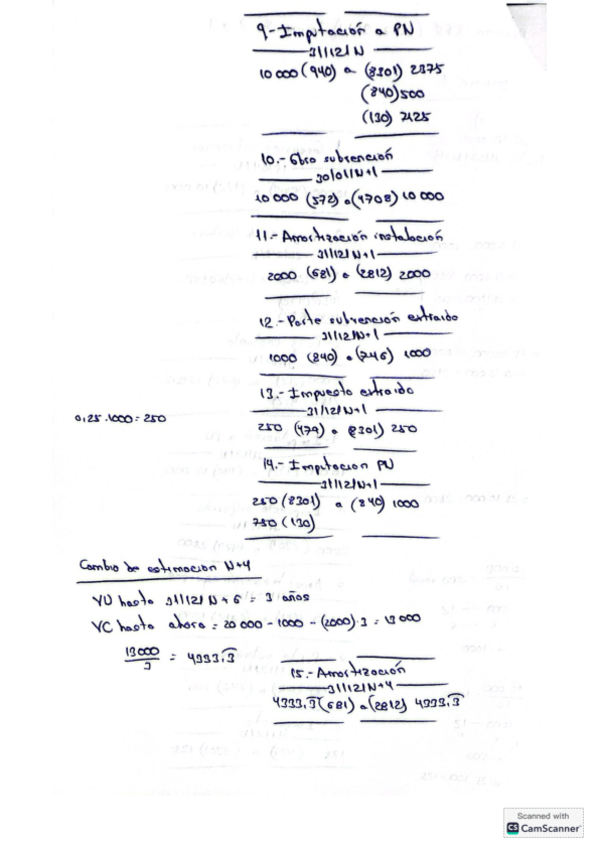 9.- Imputación a PN
31/12/N
10 000 (940) a (8301) 2375
(840) 500
(130) 7125
10.- Cbro subvención
30/01/N+1
10 000 (572) a (4708) 10 000
11.- Amortización instalación
31/12/N+1
2000 (681) a (2812) 2000
12.- Parte subvención extraido
31/12/N+1
1000 (840) a (746) 1000
13.- Impuesto extraido
31/12/N+1
0,25 · 1000 = 250
250 (479) a (8301) 250
14.- Imputacion PN
31/12/N+1
250 (8301) a (840) 1000
750 (130)
Cambio de estimacion N+4
VU hasta 31/12/N+6 = 3 años
VC hasta ahora = 20 000 - 1000 - (2000)·3 = 13 000
13000/3 = 4333,3
15.- Amortización
31/12/N+4
4333,3 (681) a (2812) 4333,3
Scanned with
CS CamScanner